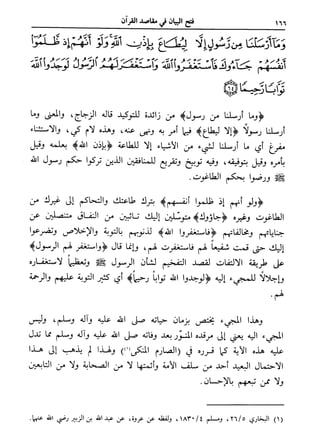 ١٦٦ فتح البيان في مقاصد القرآن
وَمَآ أَرْسَلْنَا مِن رَّسُولٍ إِلَّا لِيُطَاعَ بِإِذْنِ ٱللَّهِ وَلَوْ أَنَّهُمْ إِذ ظَّلَمُوٓا
أَنفُسَهُمْ جَآءُوكَ فَٱسْتَغْفَرُوا ٱللَّهَ وَٱسْتَغْفَرَ لَهُمُ ٱلرَّسُولُ لَوَجَدُوا ٱللَّهَ
تَوَّابًا رَّحِيمًا ٦٤
﴿وما أرسلنا من رسول﴾ من زائدة للتوكيد قاله الزجاج، والمعنى وما
أرسلنا رسولاً ﴿إلا ليطاع﴾ فيما أمر به ونهى عنه، وهذه لام كي، والاستثناء
مفرغ أي ما أرسلنا لشيء من الأشياء إلا للطاعة ﴿بإذن الله﴾ بعلمه وقيل
بأمره وقيل بتوفيقه، وفيه توبيخ وتقريع للمنافقين الذين تركوا حكم رسول الله
ﷺ ورضوا بحكم الطاغوت.
﴿ولو أنهم إذ ظلموا أنفسهم﴾ بترك طاعتك والتحاكم إلى غيرك من
الطاغوت وغيره ﴿جاؤوك﴾ متوسلين إليك تائبين من النفاق متنصلين عن
جناياتهم ومخالفاتهم ﴿فاستغفروا الله﴾ لذنوبهم بالتوبة والإخلاص وتضرعوا
إليك حتى قمت شفيعاً لهم فاستغفرت لهم، وإنما قال ﴿واستغفر لهم الرسول﴾
على طريقة الالتفات لقصد التفخيم لشأن الرسول ﷺ وتعظيماً لاستغفاره
وإجلالاً للمجيء إليه ﴿لوجدوا الله تواباً رحيماً﴾ أي كثير التوبة عليهم والرحمة
لهم.
وهذا المجيء يختص بزمان حياته صلى الله عليه وآله وسلم، وليس
المجيء اليه يعني إلى مرقده المنوّر بعد وفاته صلى الله عليه وآله وسلم مما تدل
عليه هذه الآية كما قرره في (الصارم المنكي)(١) ولهذا لم يذهب إلى هذا
الاحتمال البعيد أحد من سلف الأمة وأئمتها لا من الصحابة ولا من التابعين
ولا ممن تبعهم بالإحسان.
(١) البخاري ٢٦/٥، ومسلم ١٨٣٠/٤، ولفظه عن عروة، عن عبد الله بن الزبير رضي الله عنهما.